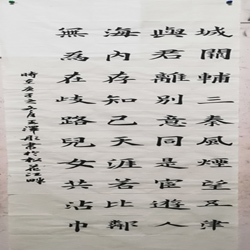 城闕輔三秦風煙望五津
與君離別意同是宦遊人
海內存知己天涯若比鄰
無為在歧路兒女共沾巾
庚子六月王澤書於松花江畔